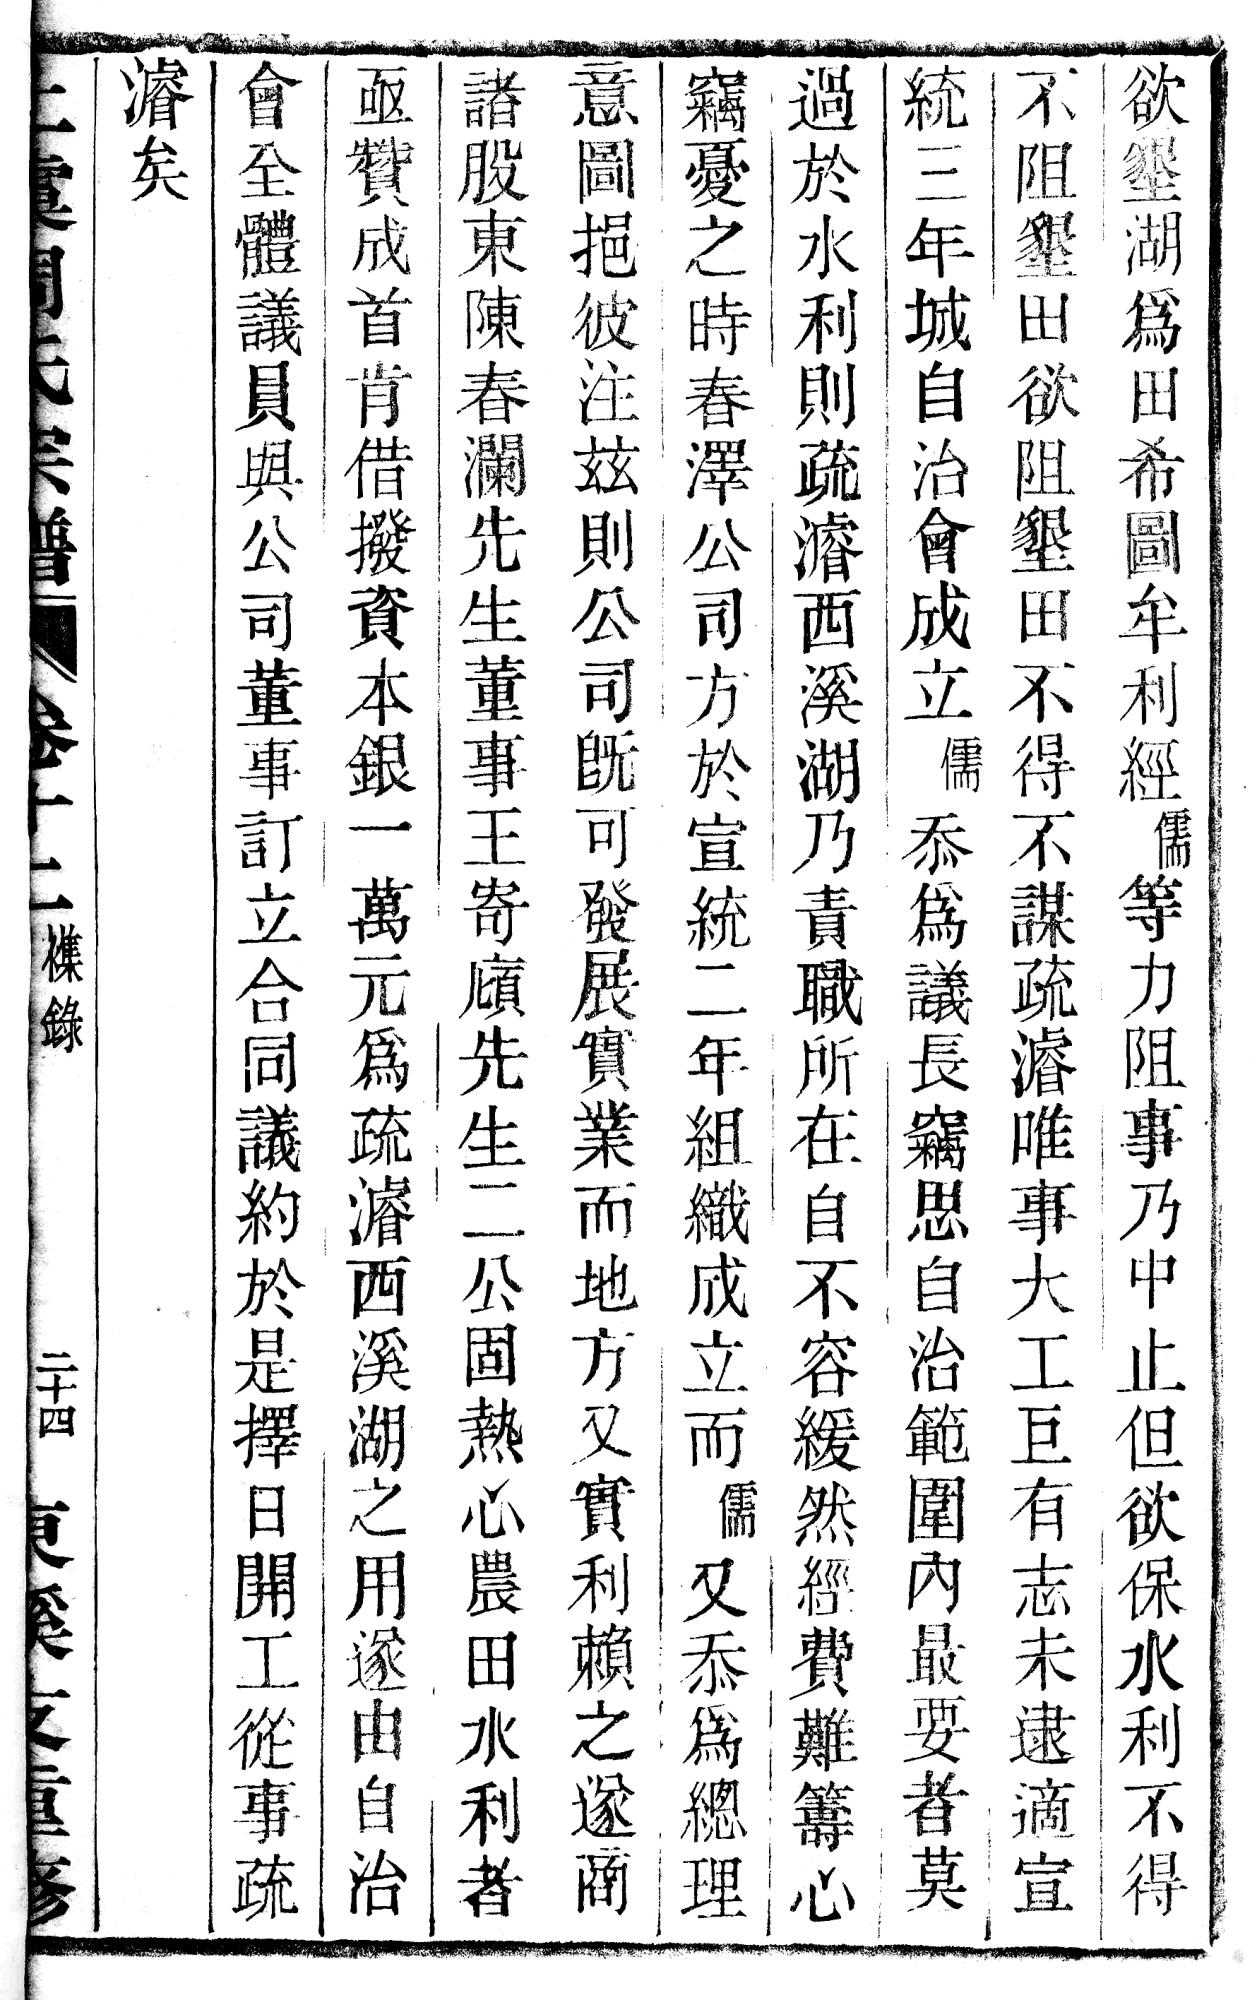 欲墾湖爲田希圖牟利經儒等力阻事乃中止但欲保水利不得
不阻墾田欲阻墾田不得不謀疏濬唯事大工巨有志未逮適宣
統三年城自治會成立儒忝爲議長竊思自治範圍內最要者莫
過於水利則疏濬西溪湖乃責職所在自不容緩然經費難籌心
竊憂之時春澤公司方於宣統二年組織成立而儒又忝爲總理
意圖挹彼注兹則公司旣可發展實業而地方又實利賴之遂商
諸股東陳春瀾先生董事王寄廎先生二公固熱心農田水利者
亟贊成首肯借撥資本銀一萬元爲疏濬西溪湖之用遂由自治
會全體議員與公司董事訂立合同議約於是擇日開工從事疏
濬矣
上虞周氏宗譜 卷十二 襍錄 二十四 東溪支重修